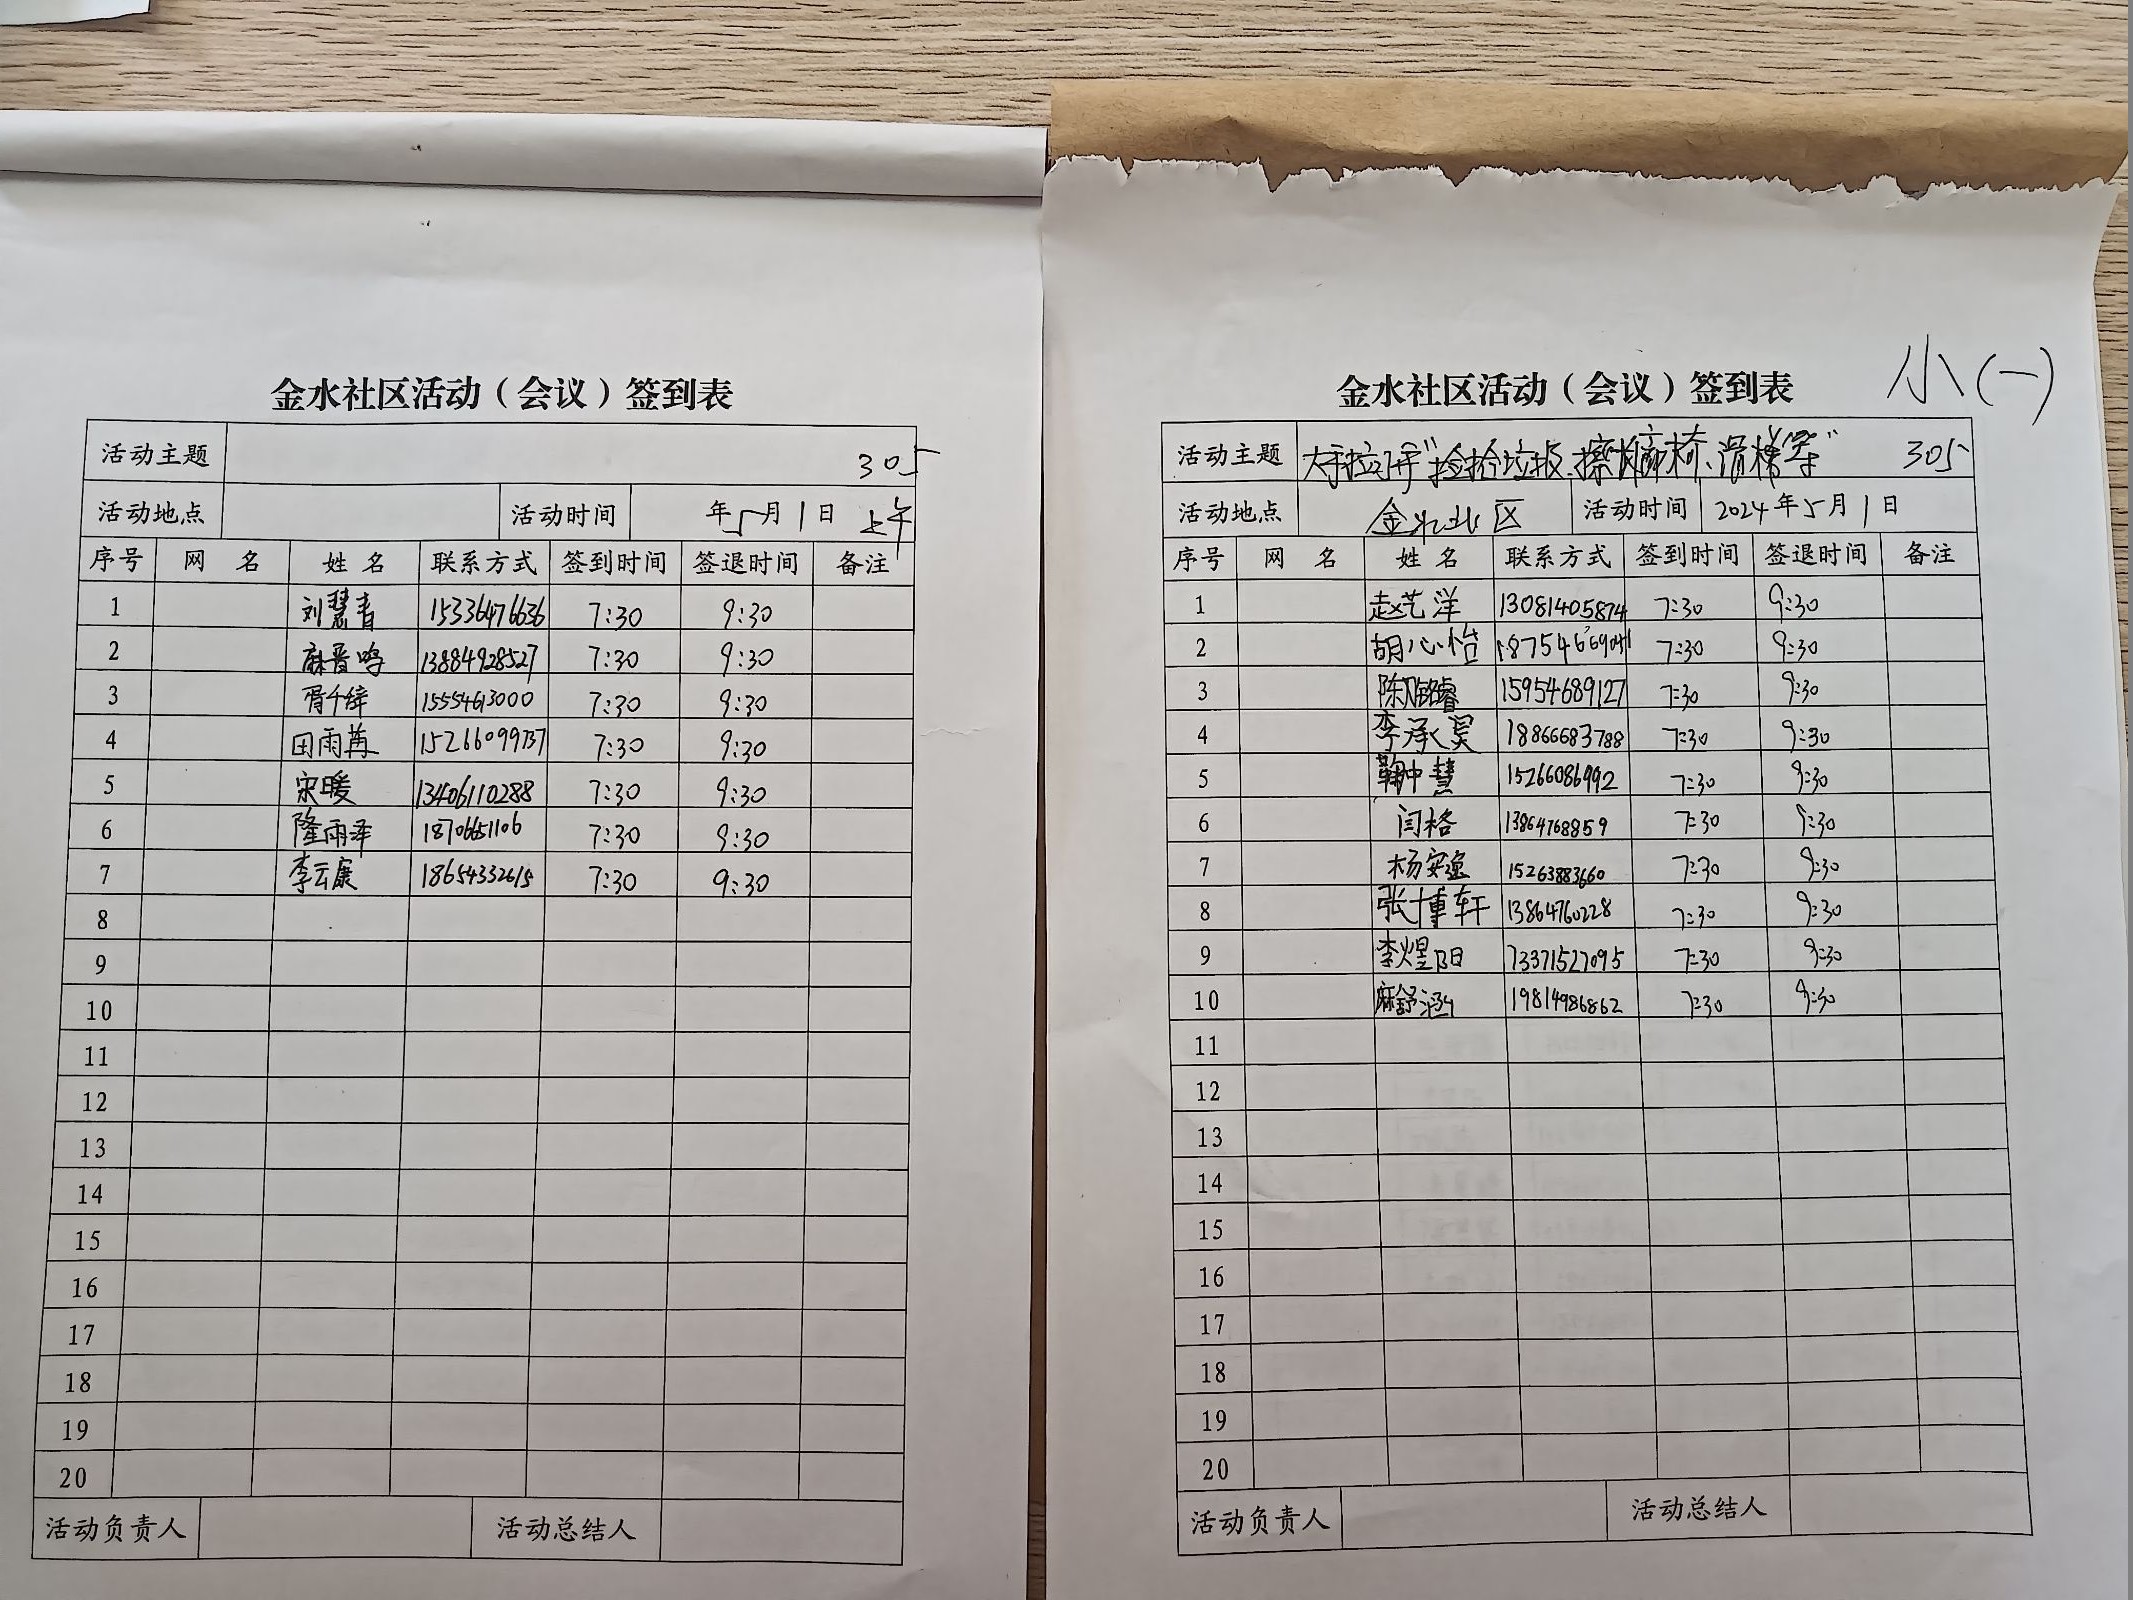 金水社区活动（会议）签到表
活动主题 305
活动地点 活动时间 年5月1日 上午
序号 网 名 姓 名 联系方式 签到时间 签退时间 备注
1 刘慧青 15336476636 7:30 9:30
2 麻晋鸣 13884928527 7:30 9:30
3 胥千绛 15554613000 7:30 9:30
4 田雨苒 7:30 9:30
5 宋暖 13406110288 7:30 9:30
6 隆雨泽 18706651106 7:30 9:30
7 李云康 18654332615 7:30 9:30
8
9
10
11
12
13
14
15
16
17
18
19
20
活动负责人 活动总结人
小(一)
金水社区活动（会议）签到表
活动主题 大手拉小手“捡拾垃圾、擦长廊椅、滑梯等” 305
活动地点 金水北区 活动时间 2024年5月1日
序号 网 名 姓 名 联系方式 签到时间 签退时间 备注
1 赵艺洋 13081405874 7:30 9:30
2 胡心怡 7:30 9:30
3 15954689127 7:30 9:30
4 李承昊 18866683788 7:30 9:30
5 鞠中慧 15266086992 7:30 9:30
6 闫格 13864768859 7:30 9:30
7 杨安逸 15263883660 7:30 9:30
8 张博轩 13864760228 7:30 9:30
9 李煜阳 13371527095 7:30 9:30
10 麻舒涵 19814986862 7:30 9:30
11
12
13
14
15
16
17
18
19
20
活动负责人 活动总结人